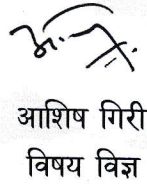 आशिष गिरी
विषय विज्ञ